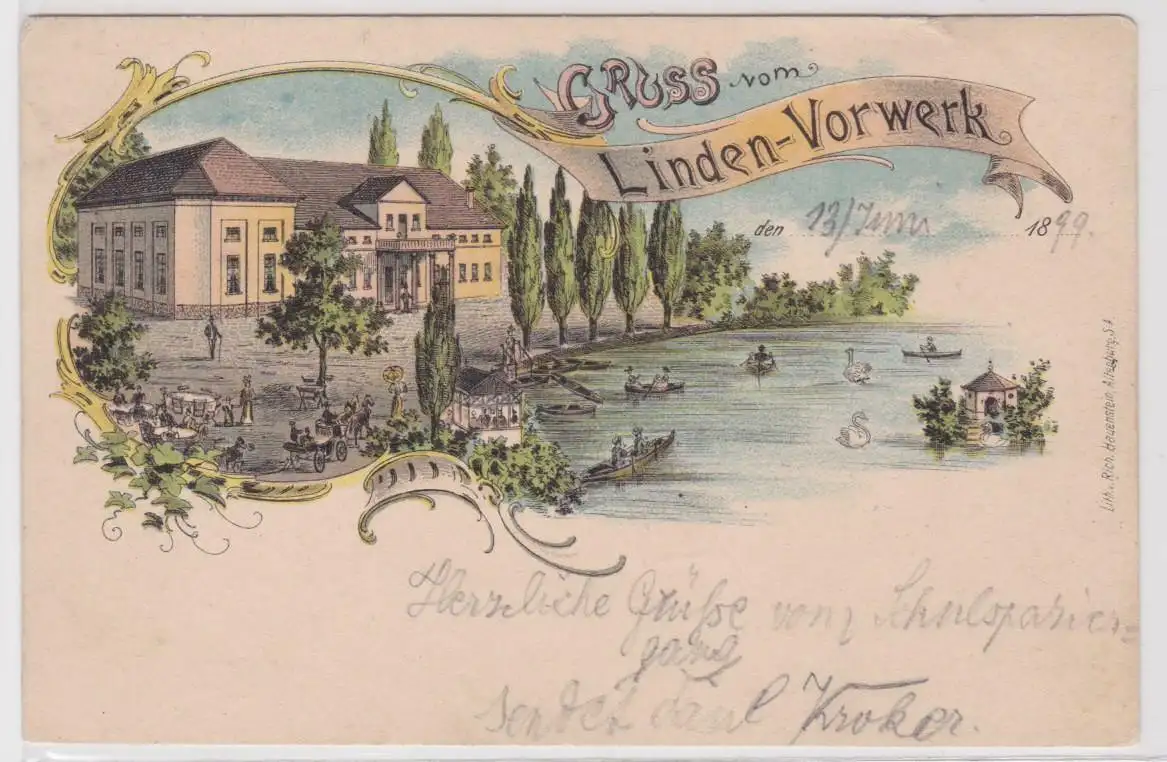 GRUSS vom
Linden-Vorwerk
den 13/Juni 1899.
Lith. v. Rich. Hauenstein, Altenburg, S.A.
Herzliche Grüße vom Schulspazier=
gang
sendet Paul Kroker.